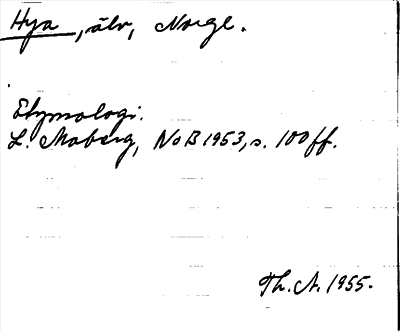 Hya, älv, Norge.
Etymologi.
L. Moberg, NoB 1953, s. 100 ff.
Th. A. 1955.